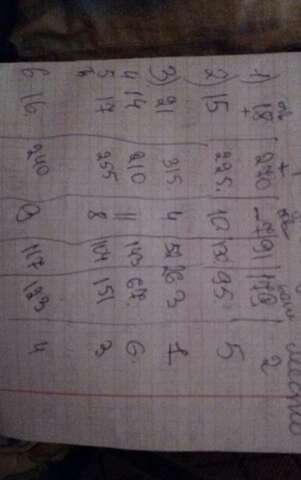 место
1) 18 + 270 -7 91 179 2
2) 15 225. 10 130 95. 5
3) 21 315 4 52 263 1
4 14 210 11 143 67. 6.
5 17 255 8 104 151 3
6 16 240 9 117 123 4